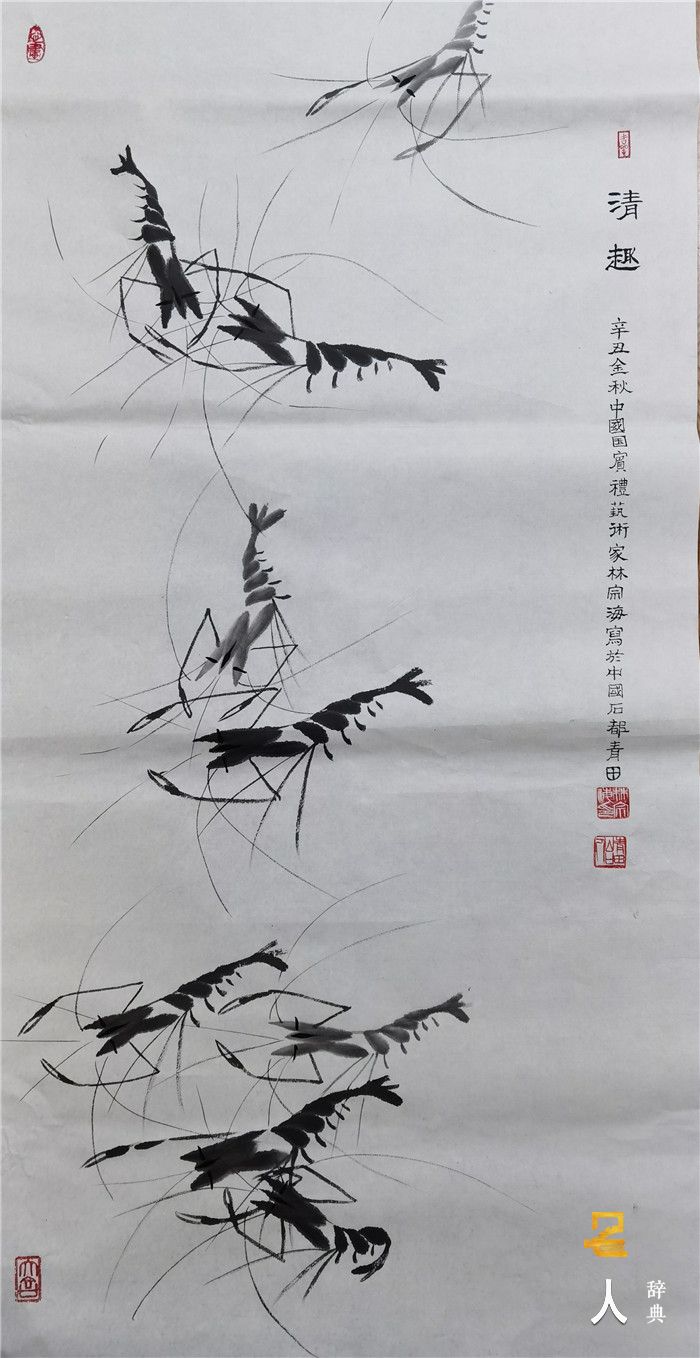 清趣
辛丑金秋中國国賓禮藝術家林宗海寫於中國石都青田
名人
辞典